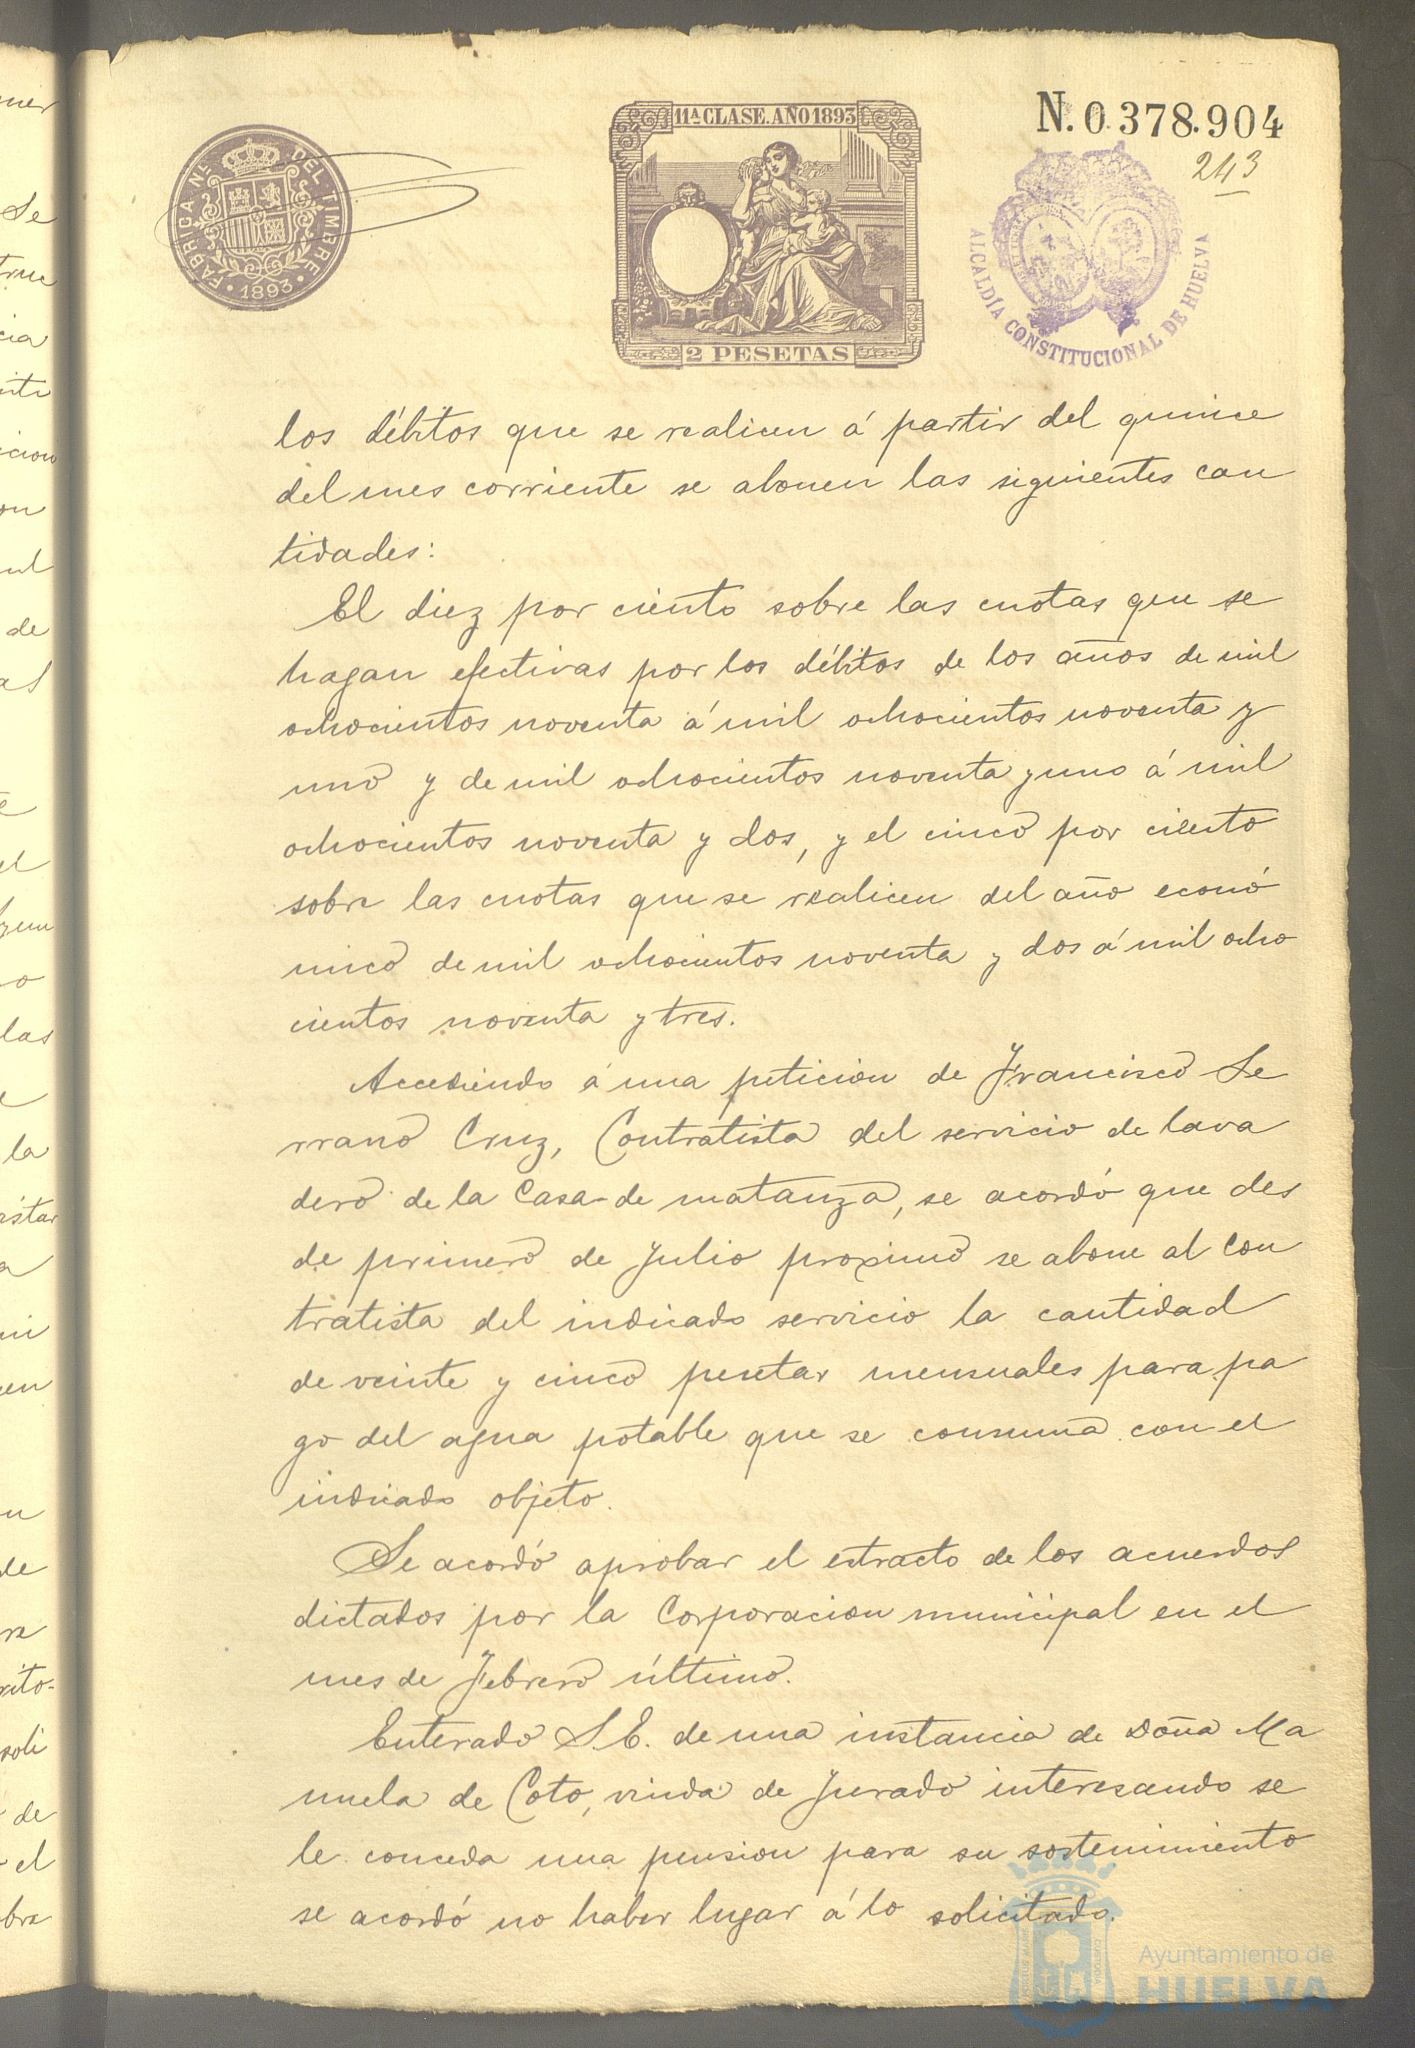 N. 0.378.904
11ª CLASE. AÑO 1893
FABRICA Nᴸ DEL TIMBRE
· 1893 ·
2 PESETAS
243
ALCALDÍA CONSTITUCIONAL DE HUELVA
los débitos que se realicen á partir del quince
del mes corriente se abonen las siguientes can
tidades:
El diez por ciento sobre las cuotas que se
hagan efectivas por los débitos de los años de mil
ochocientos noventa á mil ochocientos noventa y
uno y de mil ochocientos noventa y uno á mil
ochocientos noventa y dos, y el cinco por ciento
sobre las cuotas que se realicen del año econó
mico de mil ochocientos noventa y dos á mil ocho
cientos noventa y tres.
Accediendo á una peticion de Francisco Se
rrano Cruz, Contratista del servicio de lava
dero de la Casa-de matanza, se acordó que des
de primero de Julio proximo se abone al Con
tratista del indicado servicio la cantidad
de veinte y cinco pesetas mensuales para pa
go del agua potable que se consuma con el
indicado objeto.
Se acordó aprobar el estracto de los acuerdos
dictados por la Corporacion municipal en el
mes de Febrero último.
Enterado S. E. de una instancia de Doña Ma
nuela de Coto, viuda de Jurado interesando se
le conceda una pension para su sostenimiento
se acordó no haber lugar á lo solicitado.
Ayuntamiento de
HUELVA